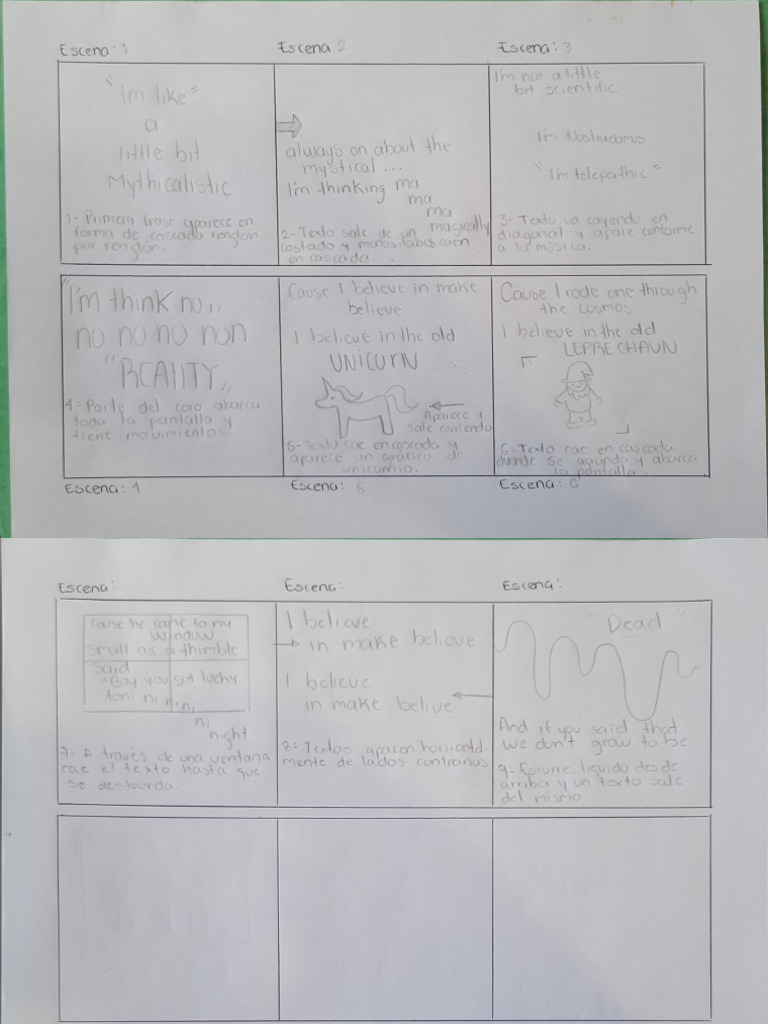 Escena: 1
Escena 2
Escena: 3
"Im like"
a
little bit
Mythicalistic
1- Primera frase aparece en
forma de cascada renglon
por renglon.
always on about the
mystical ...
I'm thinking ma
ma
ma
magically
2- Texto sale de un
costado y monosilabos caen
en cascada.
I'm not a little
bit scientific
I'm Nostradamus
"I'm telepathic"
3- Texto va cayendo en
diagonal y apare conforme
a la música.
"I'm think nu,,
nu nu nu nun
"REALITY,,
4- Parte del coro abarca
toda la pantalla y
tiene movimientos
Cause I believe in make
believe
I believe in the old
UNICORN ...
Aparece y
sale corriendo
5- Texto cae en cascada y
aparece un grafico de
unicornio.
Cause I rode one through
the cosmos
I believe in the old
LEPRECHAUN
6- Texto cae en cascada
donde se agranda y abarca
la pantalla.
Escena: 4
Escena: 5
Escena: 6
Escena:
Escena:
Escena:
Cause he came to my
window
small as a thimble
said
"Boy you got lucky
toni ni ni ni
ni
night
7- A través de una ventana
cae el texto hasta que
se desborda.
I believe
in make believe
I believe
in make belive
8= Textos aparen horizontal-
mente de lados contrarios
"Dead"
And if you said that
we don't grow to be
9- Escurre liquido desde
arriba y un texto sale
del mismo.